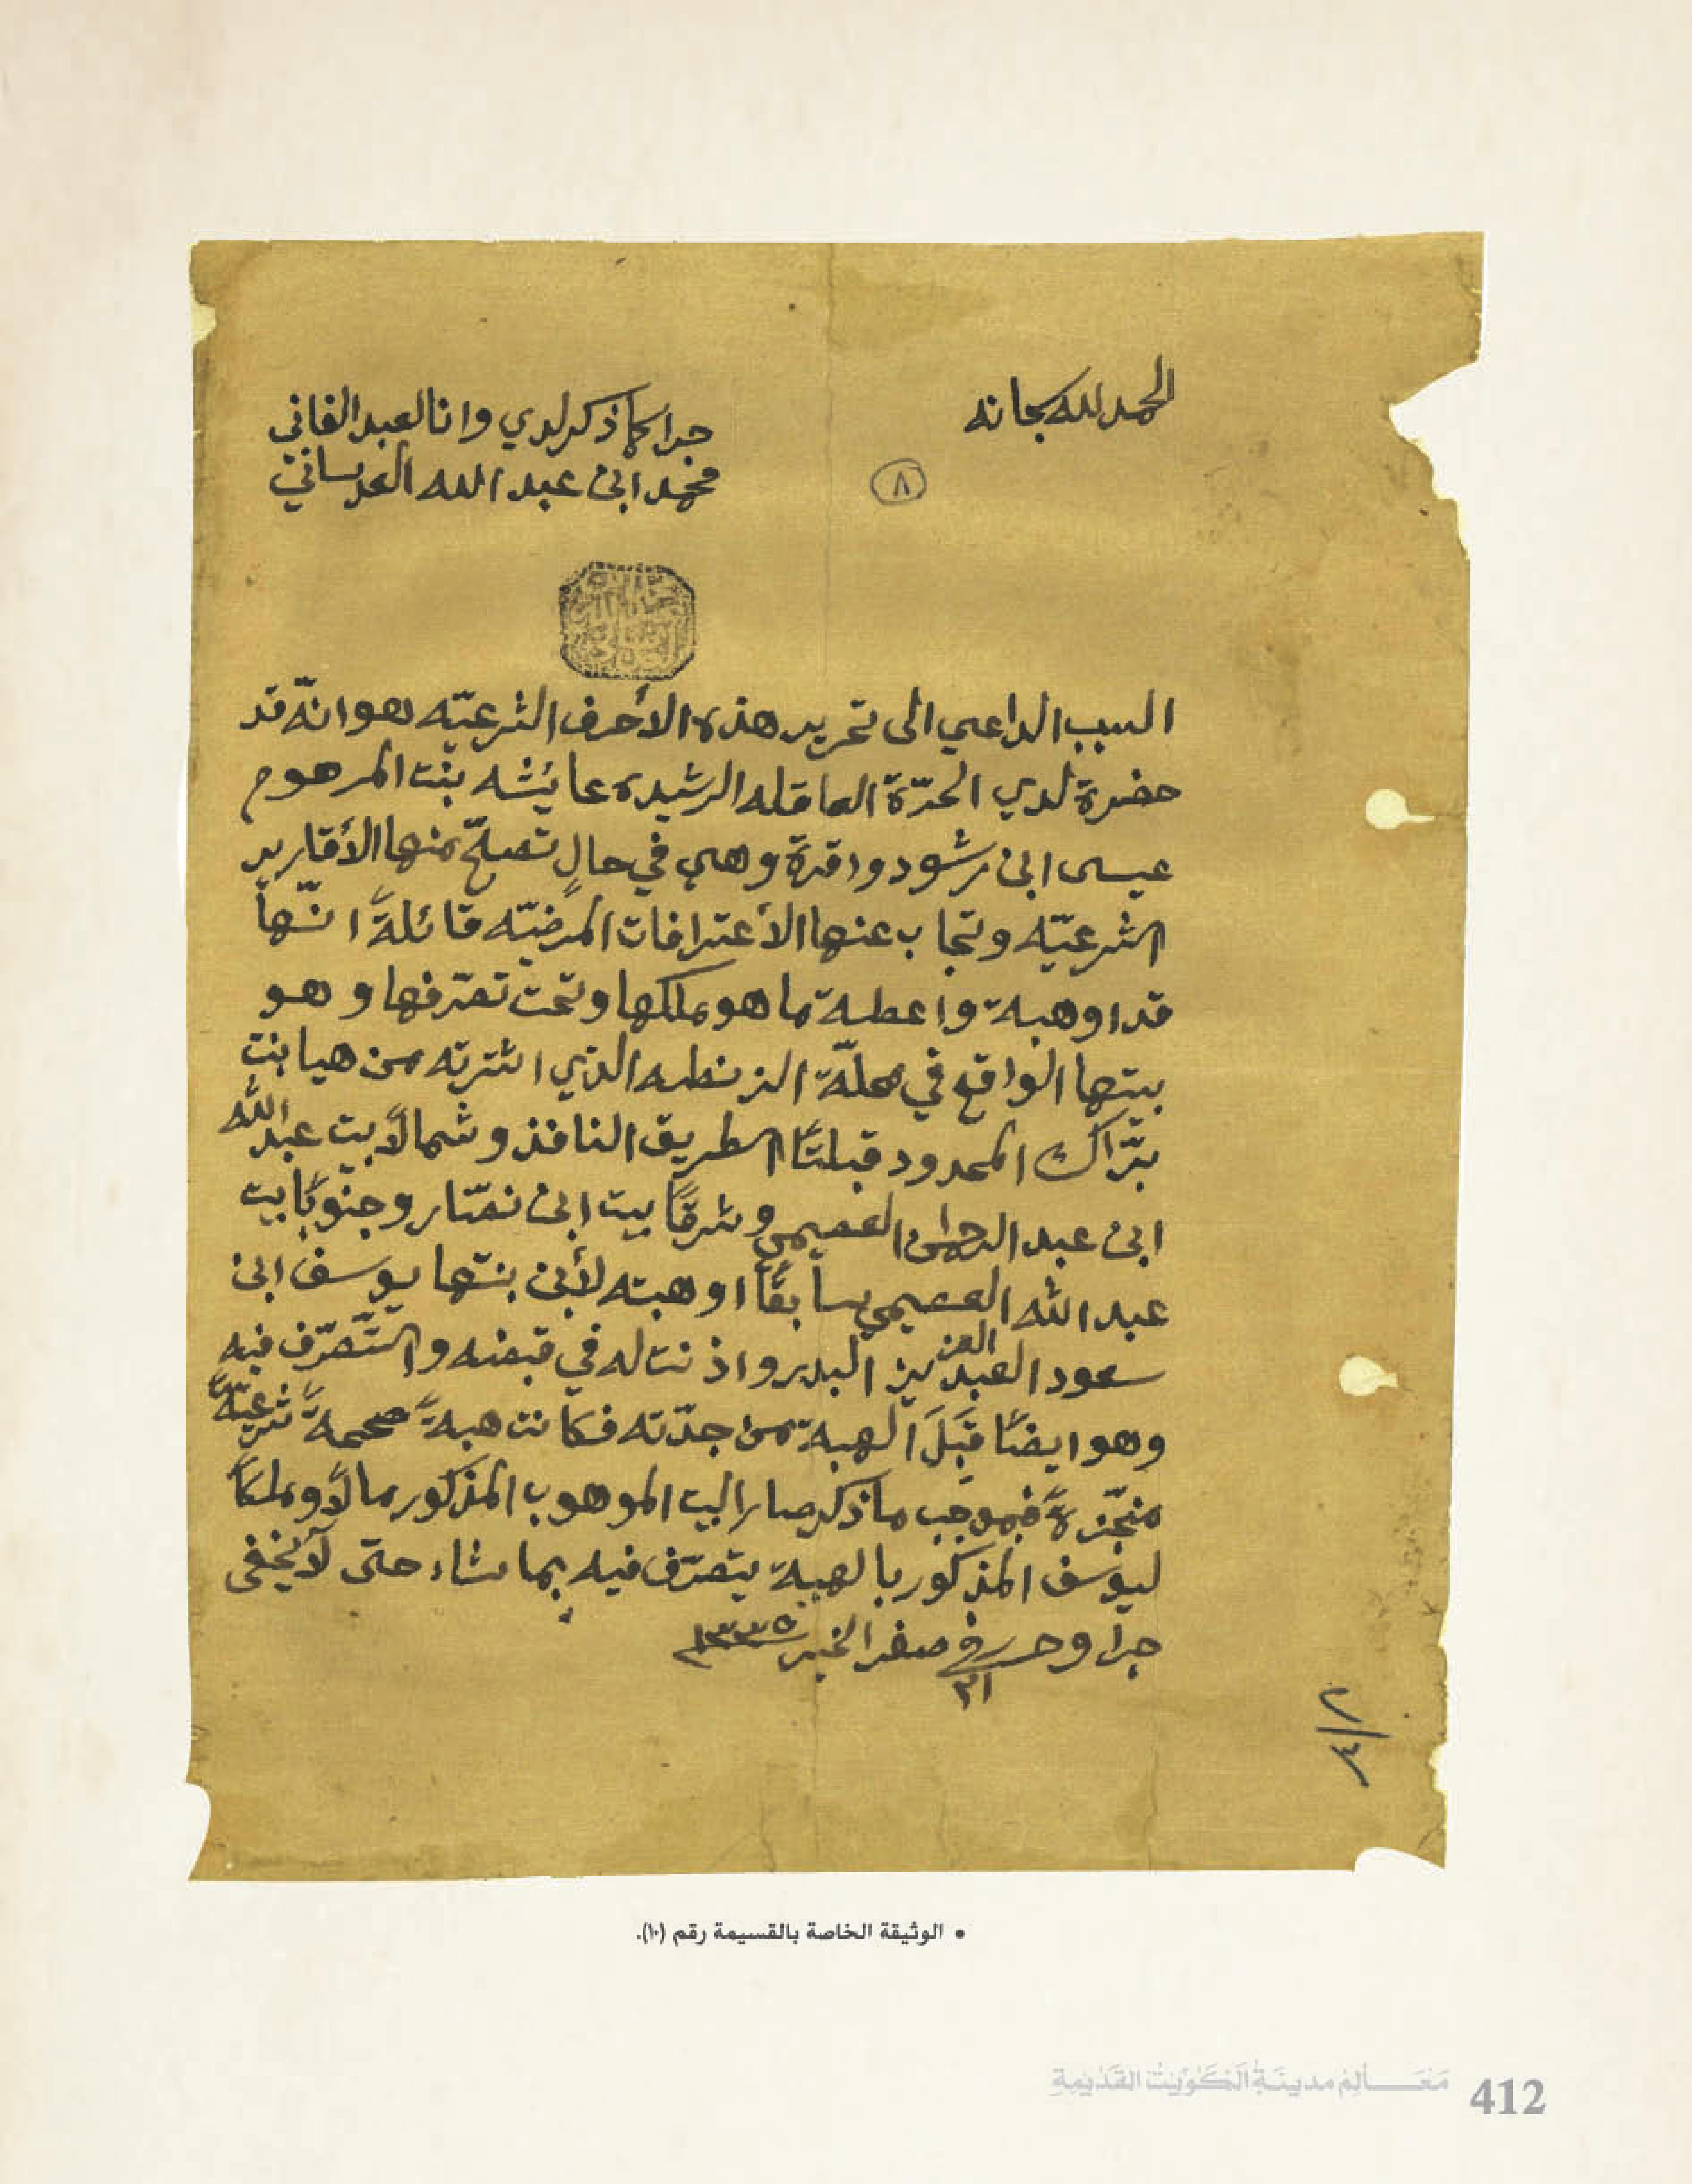 الحمد لله سبحانه
جرا كما ذكر لدي وانا العبد الفاني
محمد ابن عبد الله العدساني
٨
السبب الداعي الى تحرير هذه الأحرف الشرعيّه هو انّه قد
حضرة لدي الحرّة العاقله الرشيده عايشه بنت المرهوم
عيسى ابن رشود واقرة وهي في حالٍ تصحّ منها الأقارير
الشرعيّه وتجاب عنها الأعترافات المرضيّه قائلةً انّها
قد اوهبة واعطة ما هو ملكها وتحت تصرّفها وهو
بيتها الواقع في محلّة الزنطه الذي اشترته من هيا بنت
برّاك المحدود قبلتًا الطريق النافذ وشمالاً بيت عبد الله
ابن عبد الرحمن العصيمي وشرقًا بيت ابن نصّار وجنوبًا بيت
عبد الله العصيمي سابقًا اوهبته لأبن بنتها يوسف ابن
سعود العبد العزيز البدر واذنت له في قبضه والتّصرّف فيه
وهو ايضًا قَبِلَ الهبة من جدّته فكانت هبةً صحيحةً شرعيّةً
منجّزةً فبموجب ما ذكر صار البيت الموهوب المذكور مالاً وملكاً
ليوسف المذكور بالهبة يتصرّف فيه بما شاء حتى لا يخفى
جرا وحرر في صفر الخير ١٣٣٥
٢١
٤/٢
• الوثيقة الخاصة بالقسيمة رقم (١٠).
مَعَـــالِمُ مدينَـةِ الكُوَيْتْ القَدْيمِةِ
412